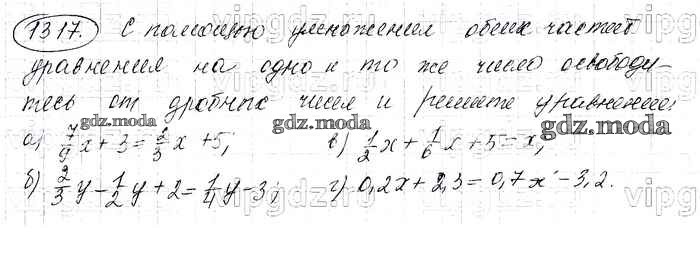 1317. С помощью умножения обеих частей
уравнения на одно и то же число освободи-
тесь от дробных чисел и решите уравнение:
gdz.moda gdz.moda gdz.moda
а) 7/9 x + 3 = 2/3 x + 5; в) 1/2 x + 1/6 x + 5 = x;
б) 2/3 y - 1/2 y + 2 = 1/4 y - 3; г) 0,2x + 2,3 = 0,7x - 3,2.